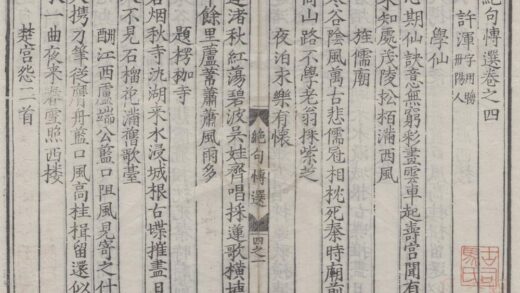 絕句傳選卷之四
許渾 字用晦 丹陽人
學仙
心期仙訣意無窮彩畫雲車起壽宮聞有
未知處茂陵松栢滿西風
旌儒廟
谷陰風萬古悲儒冠相枕死秦時廟前
商山路不學老翁採紫芝
夜泊永樂有懷
蓮渚秋紅蕩碧波吳娃齊唱採蓮歌橫塘
餘里蘆葦蕭蕭風雨多
絕句傳選
四之一
題楞枷寺
碧烟秋寺汎湖來水浸城根古堞摧盡日
人不見石榴花滿歌臺
酬江西盧端公藍口阻風見寄之什
人攜刀筆從膺舟藍口風高桂楫留還似
一曲夜來春雪照西樓
楚宮怨二首
古司馬氏